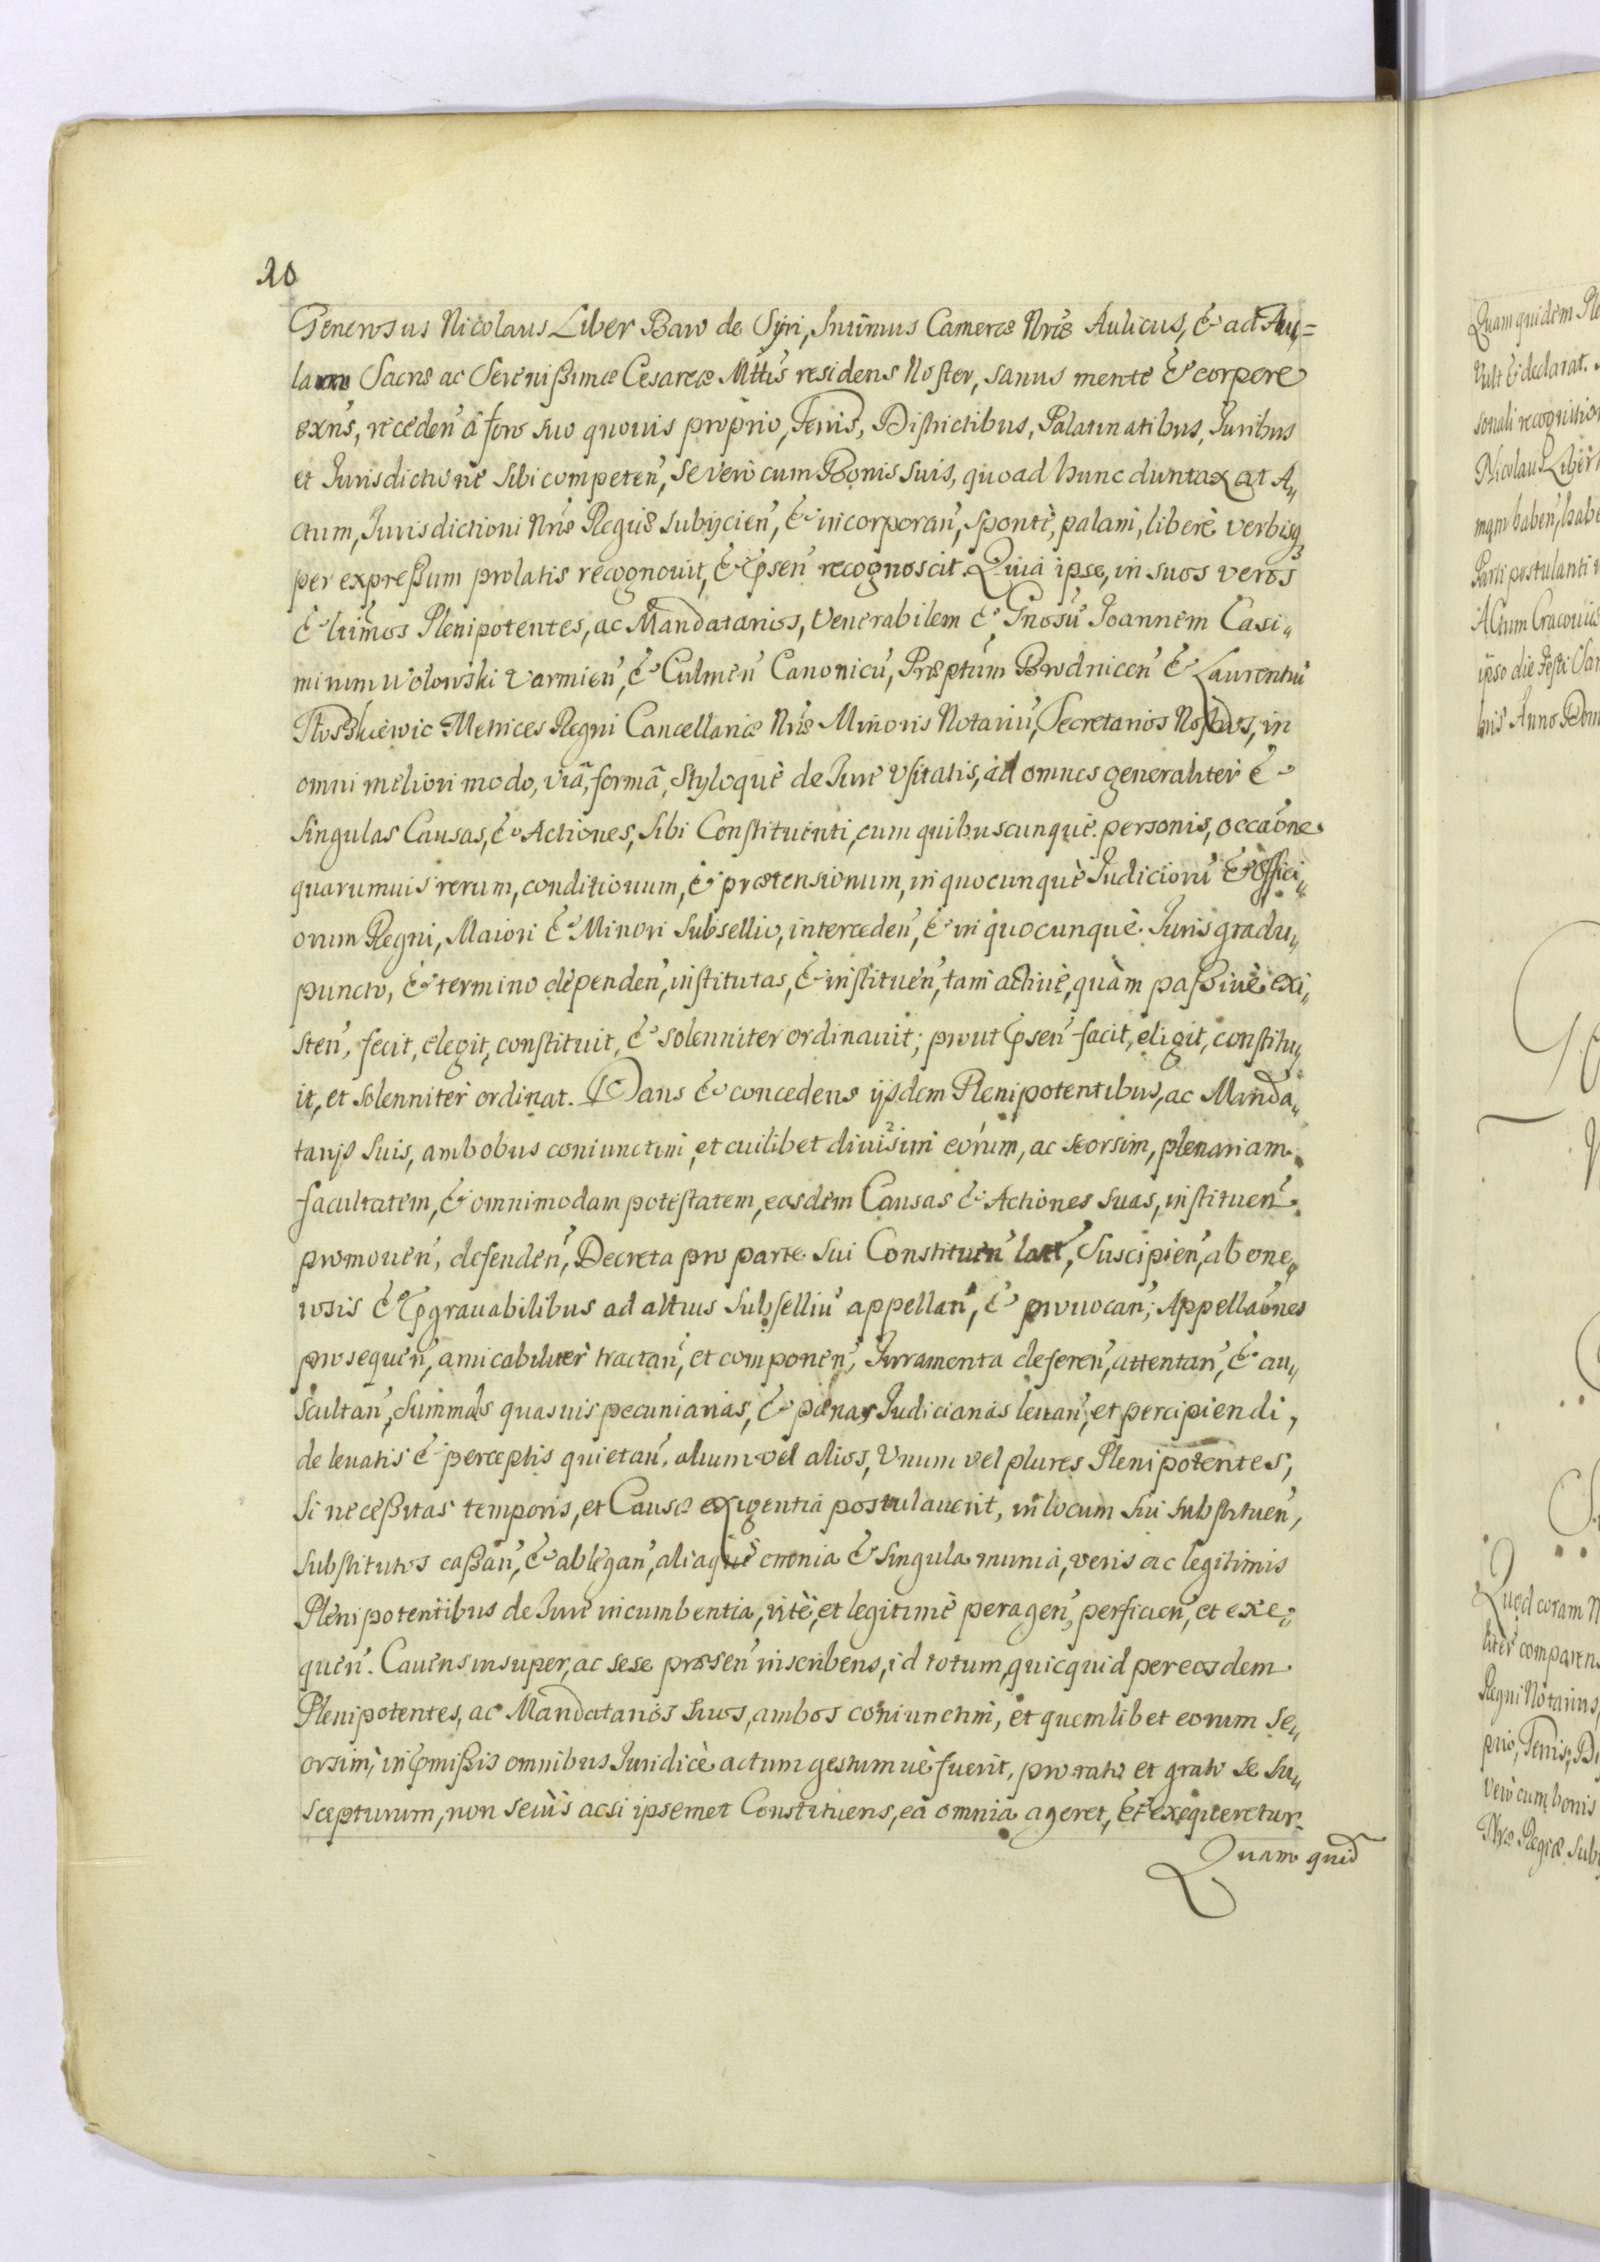 10
Generosus Nicolaus Liber Baro de Gyri, Intimus Cameræ Nræ Aulicus, & ad Au=
lam Sacræ ac Serenißimæ Cesareæ Mttis residens Noster, sanus mente & corpore
exns, receden̄ à foro suo quouis proprio, Terris, Districtibus, Palatinatibus, Juribus
et Jurisdictione sibi competen̄, se vero cum Bonis suis, quoad hunc duntaxat A„
ctum, Jurisdictioni Nræ Regiæ subijcien̄, & incorporan̄, sponte, palam, liberè verbisq3
per expreßum prolatis recognouit, & Ꝓsen̄ recognoscit. Quia ipse, in suos veros
& ltimos Plenipotentes, ac Mandatarios, Venerabilem & Gnosū Joannem Casi„
mirum Wolowski Varmien̄, & Culmen̄ Canonicū, Præptum Brodnicen̄ & Laurentiū
Metrices Regni Cancellariæ Nræ Minoris Notariū, Secretarios Nostros, in
omni meliori modo, viâ, formâ, styloquè de Jure vsitatis, ad omnes generaliter &
singulas Causas, & Actiones, sibi Constituenti, cum quibuscunquè personis, occaōne
quarumuis rerum, conditionum, & prætensionum, in quocunquè Judiciorū & Offici„
orum Regni, Maiori & Minori subsellio, interceden̄, & in quocunquè Juris gradu„
puncto, & termino dependen̄, institutas, & instituen̄, tam actiuè, quàm paßiuè exi„
sten̄, fecit, elegit, constituit, & solenniter ordinauit; prout Ꝓsen̄ facit, eligit, constitu„
it, et solenniter ordinat. Dans & concedens ijsdem Plenipotentibus, ac Manda„
tarijs suis, ambobus coniunctim, et cuilibet diuisim eorum, ac seorsim, plenariam
facultatem, & omnimodam potestatem, easdem Causas & Actiones suas, instituen̄
promouen̄, defenden̄, Decreta pro parte sui Constituen̄ lata, suscipien̄, ab one„
rosis & Ꝓgrauabilibus ad altius subselliū appellan̄, & prouocan̄; Appellaōnes
prosequen̄, amicabiliter tractan̄, et componen̄, Juramenta deferen̄, attentan̄, & au„
scultan̄, summas quasuis pecuniarias, & pænas Judiciarias leuan̄, et percipiendi,
de leuatis & perceptis quietan̄. alium vel alios, vnum vel plures Plenipotentes,
si neceßitas temporis, et Causæ exigentia postulauerit, in locum sui substituen̄,
substitutos caßan̄, & ablegan̄, aliaquè omnia & singula munia, veris ac legitimis
Plenipotentibus de Jure incumbentia, ritè, et legitimè peragen̄, perficien̄, et exe„
quen̄. Cauens insuper, ac sese præsen̄ inscribens, id totum, quicquid per eosdem
Plenipotentes, ac Mandatarios suos, ambos coniunctim, et quemlibet eorum se„
orsim, in Ꝓmißis omnibus Juridicè actum gestumuè fuerit, pro rato et grato se su„
scepturum, non seciùs acsi ipsemet Constituens, ea omnia ageret, & exequeretur.
Quam quid
Quam quidem
vult & declarat.
sonali recognition
Nicolaus Liber
mqm haben̄, habe
Parti postulanti
Actum Cracouiæ
ipso die Festi
nis Anno Dom
Quod coram N
liter comparens
Regni Notarius,
prio, Terris, Di
vero cum bonis
Nræ Regiæ Sub